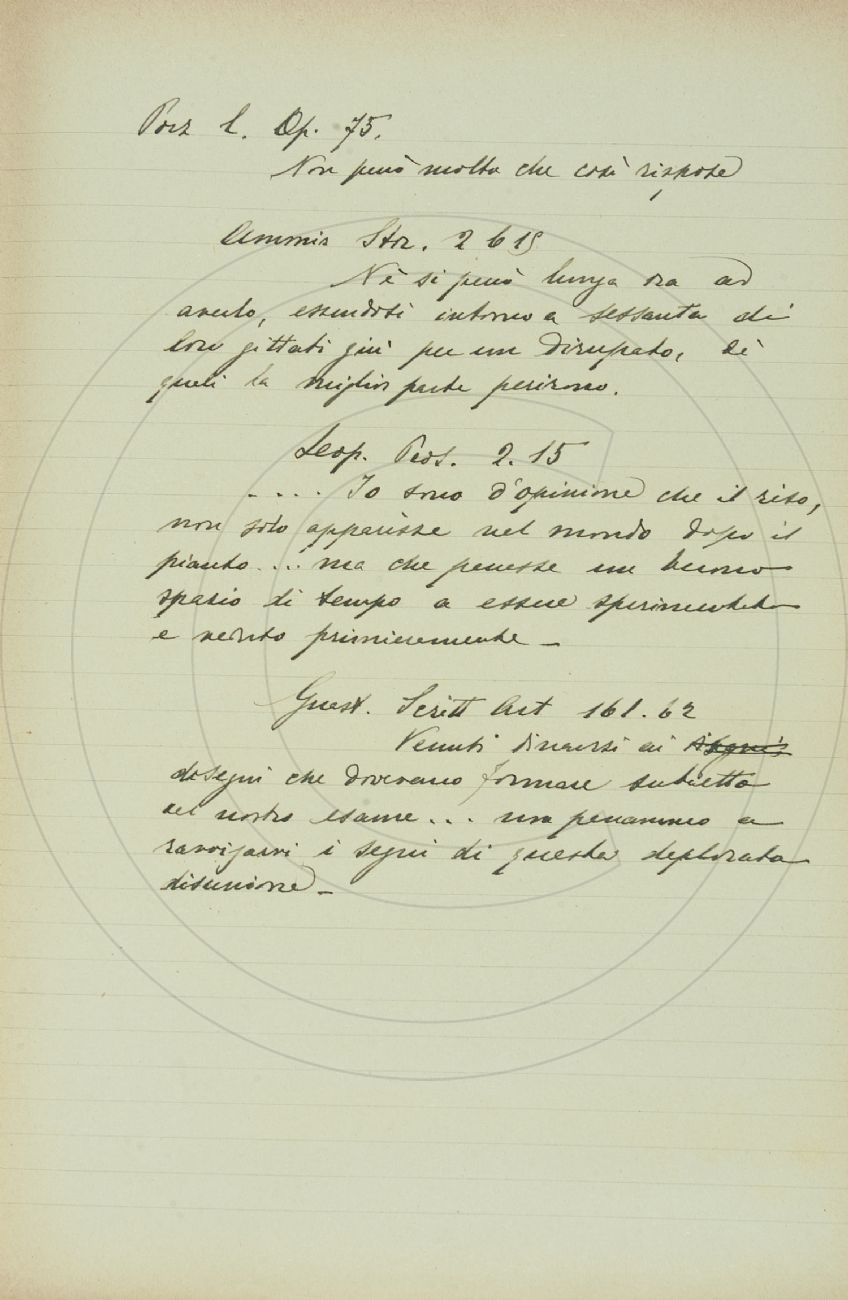 Porz L. Op. 75.
Non penò molto che così rispose
Ammir Stor. 2 619
Nè si penò lunga ora ad
averlo, essendosi intorno a sessanta di
loro gittati giù per un dirupato, dè
queli la miglior parte perirono.
Leop. Pros. 2. 15
.... Io sono d'opinione che il riso,
non solo apparisse nel mondo dopo il
pianto... ma che penasse un buono
spazio di tempo a essere sperimentato
e veduto primieramente –
Guast. Scritt Art 161.62
Venuti dinanzi ai disegni
disegni che dovevano formare subietto
del nostro esame... non penammo a
ravvisarvi i segni di questa deplorata
disunione –